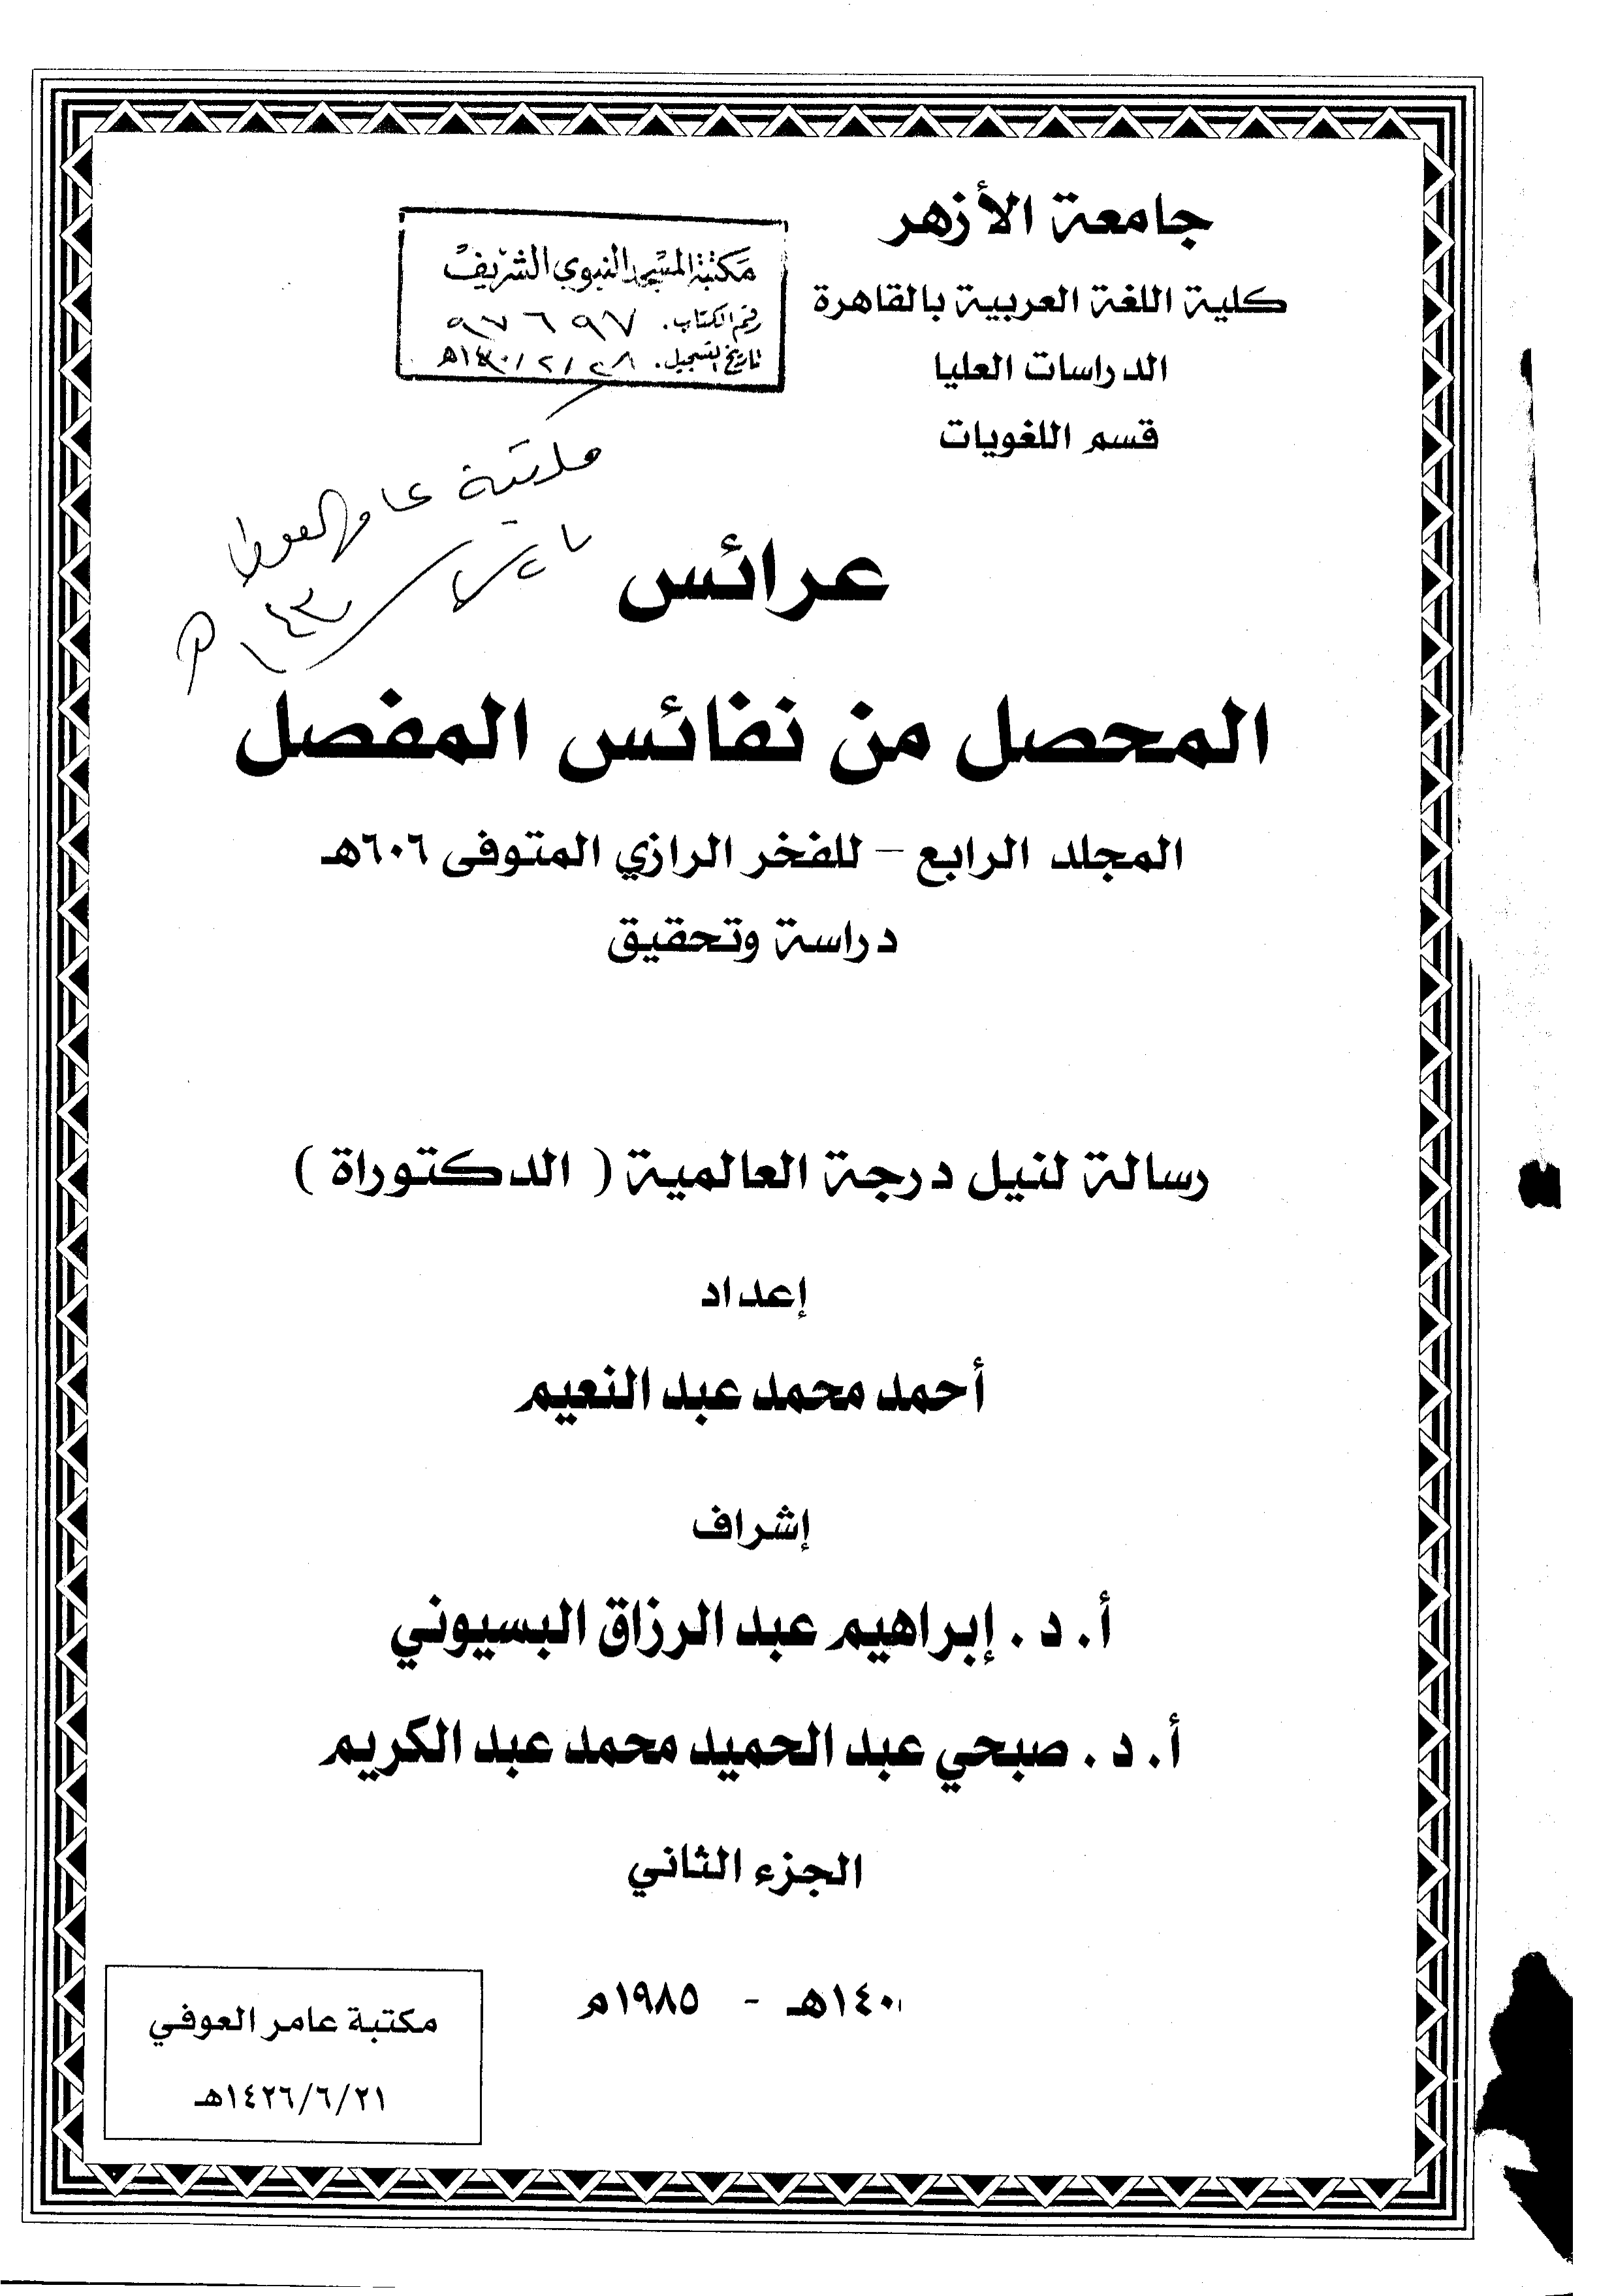 جامعة الأزهر
كلية اللغة العربية بالقاهرة
الدراسات العليا
قسم اللغويات
مكتبة المسجد النبوي الشريف
رقم الكتاب.
تاريخ التسجيل.
مكتبة عامر العوفي
عرائس
المحصل من نفائس المفصل
المجلد الرابع - للفخر الرازي المتوفى ٦٠٦هـ
دراسة وتحقيق
رسالة لنيل درجة العالمية ( الدكتوراة )
إعداد
أحمد محمد عبد النعيم
إشراف
أ. د. إبراهيم عبد الرزاق البسيوني
أ. د. صبحي عبد الحميد محمد عبد الكريم
الجزء الثاني
١٤٠هـ - ١٩٨٥م
مكتبة عامر العوفي
١٤٢٦/٦/٢١هـ